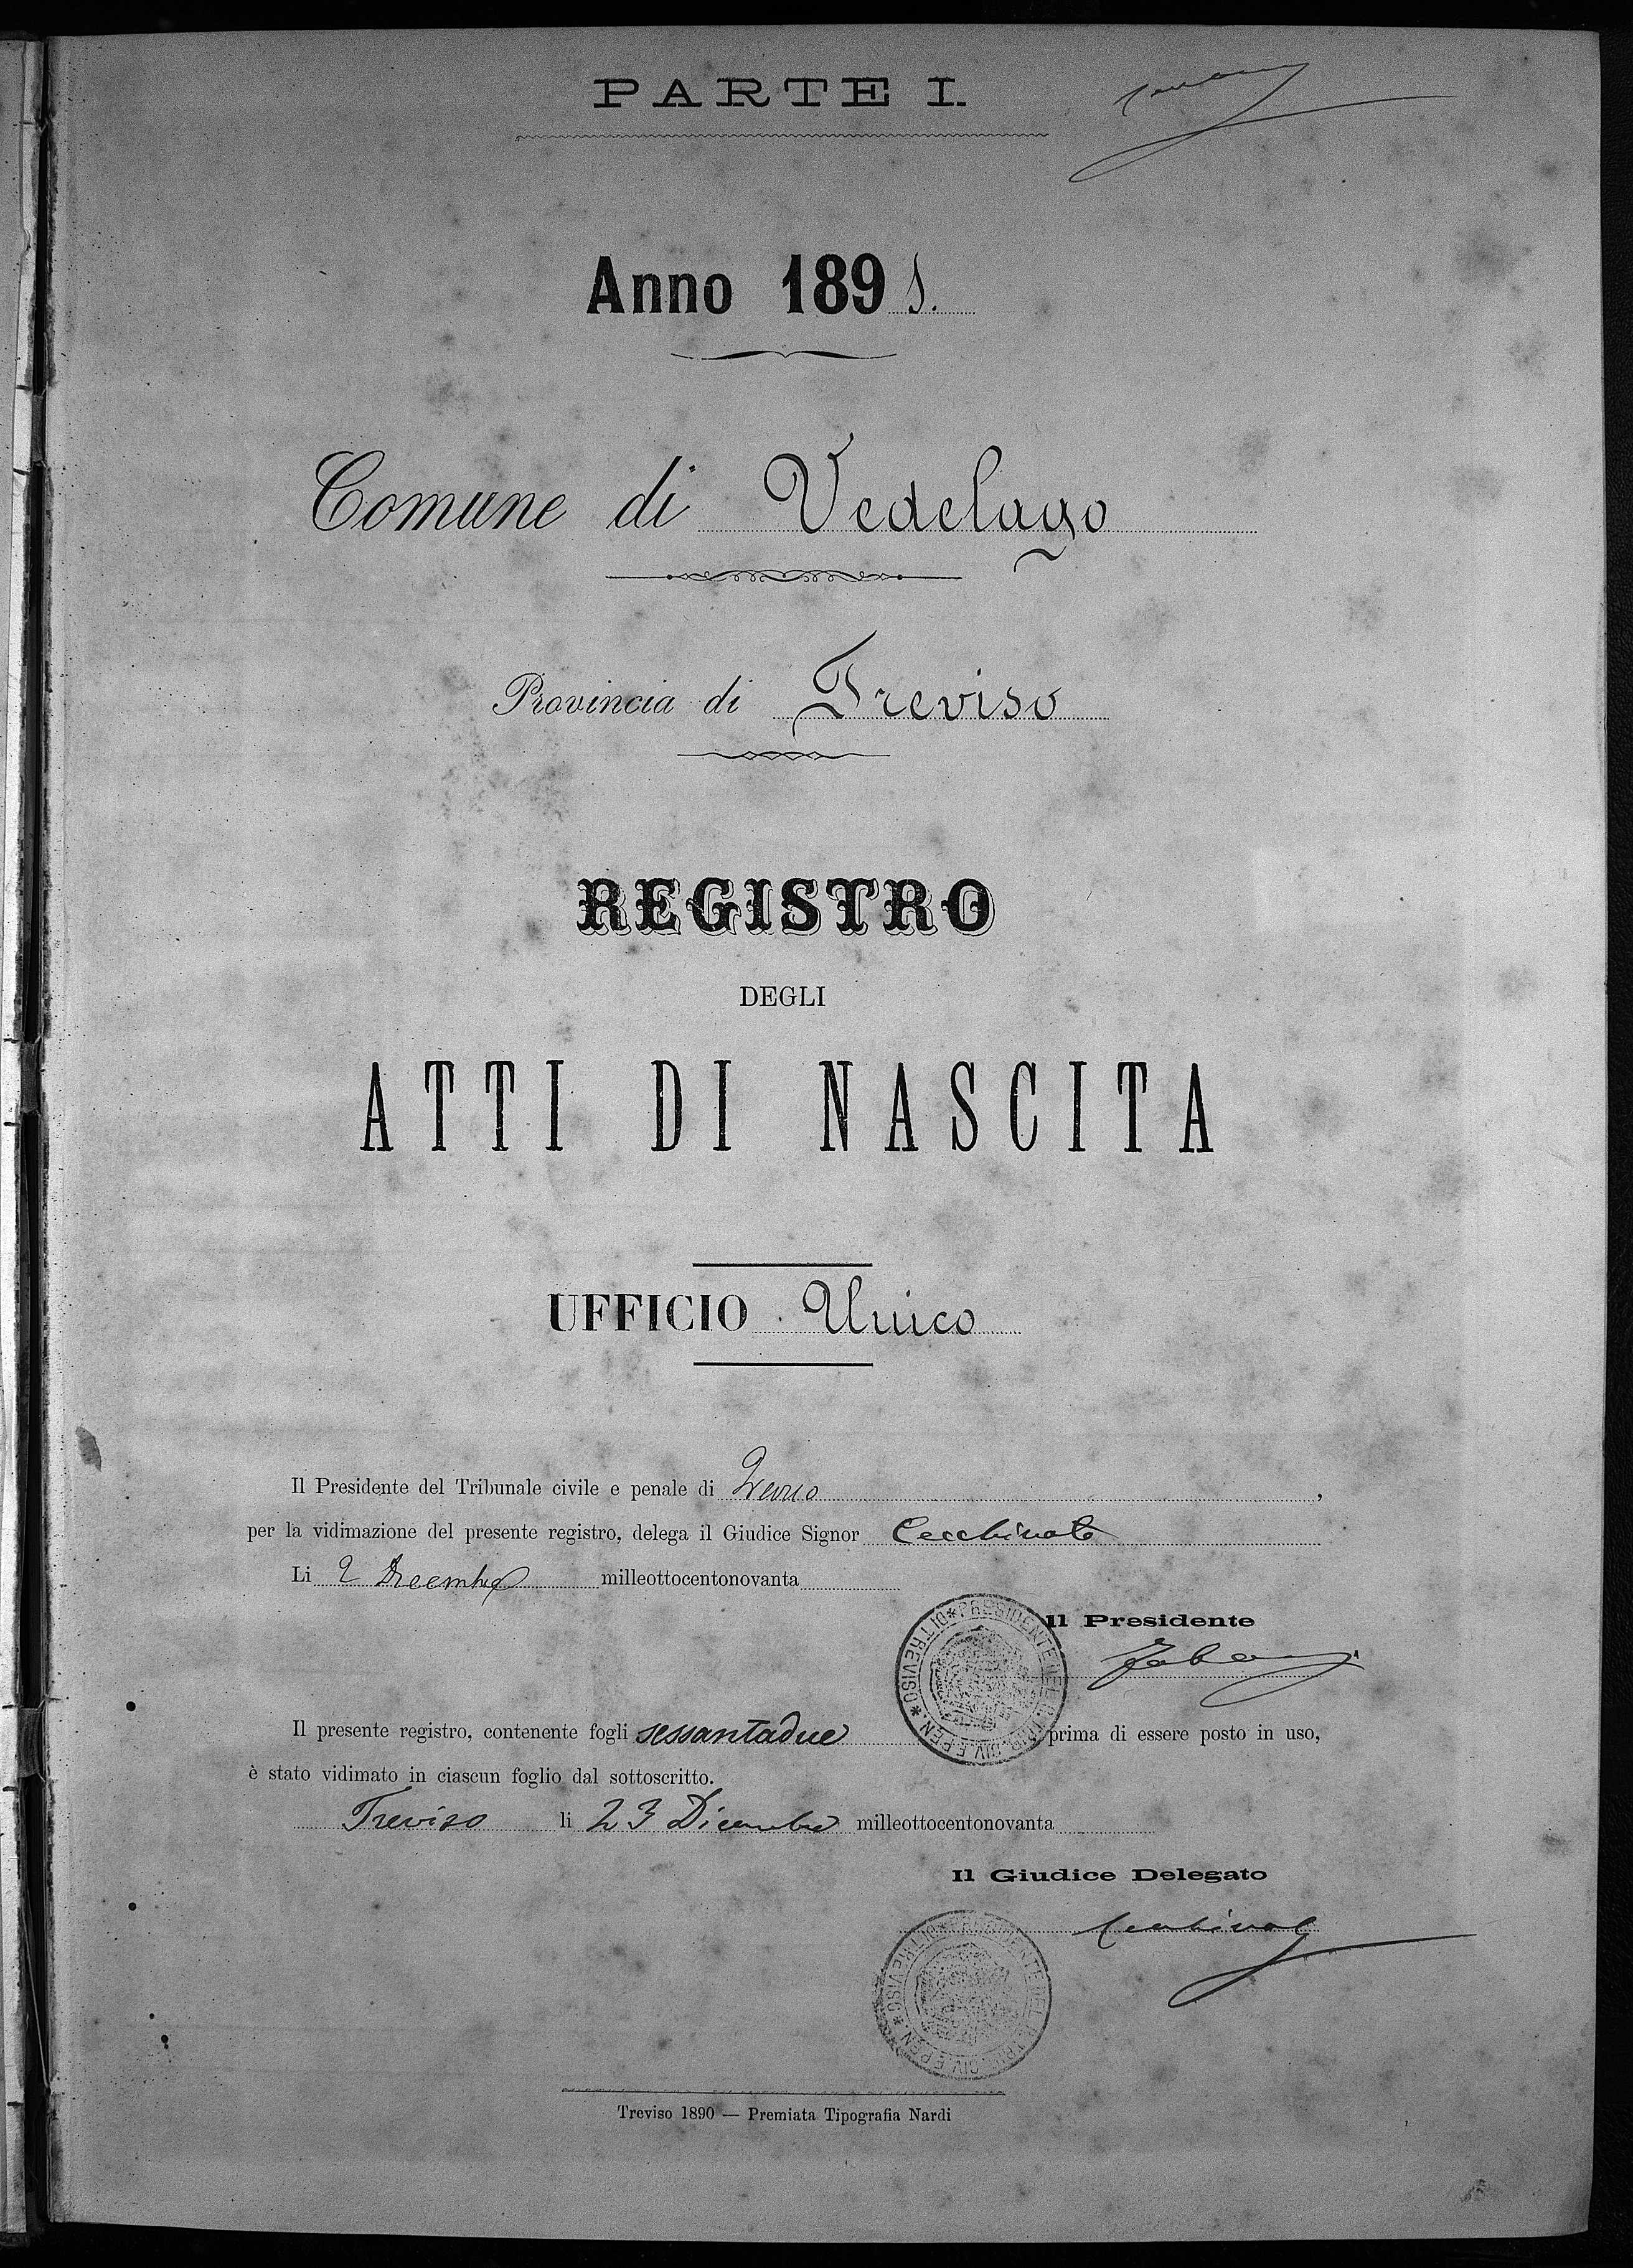 PARTE I.
Anno 1891.
Comune di Vedelago
Provincia di Treviso
REGISTRO
DEGLI
ATTI DI NASCITA
UFFICIO Unico
Il Presidente del Tribunale civile e penale di Treviso,
per la vidimazione del presente registro, delega il Giudice Signor Cecchinato
Li 2 Dicembre milleottocentonovanta
Il Presidente
Il presente registro, contenente fogli sessantadue prima di essere posto in uso,
è stato vidimato in ciascun foglio dal sottoscritto.
Treviso li 23 Dicembre milleottocentonovanta
Il Giudice Delegato
Treviso 1890 — Premiata Tipografia Nardi